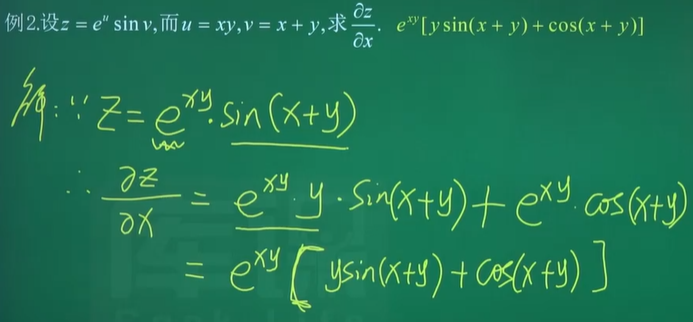 例2.设z = eᵘ sin v,而u = xy,v = x + y,求∂z/∂x. eˣʸ[y sin(x + y) + cos(x + y)]
解:∵ Z = eˣʸ·sin(x+y)
∴ ∂z/∂x = eˣʸ·y·sin(x+y) + eˣʸ·cos(x+y)
= eˣʸ[ysin(x+y) + cos(x+y)]